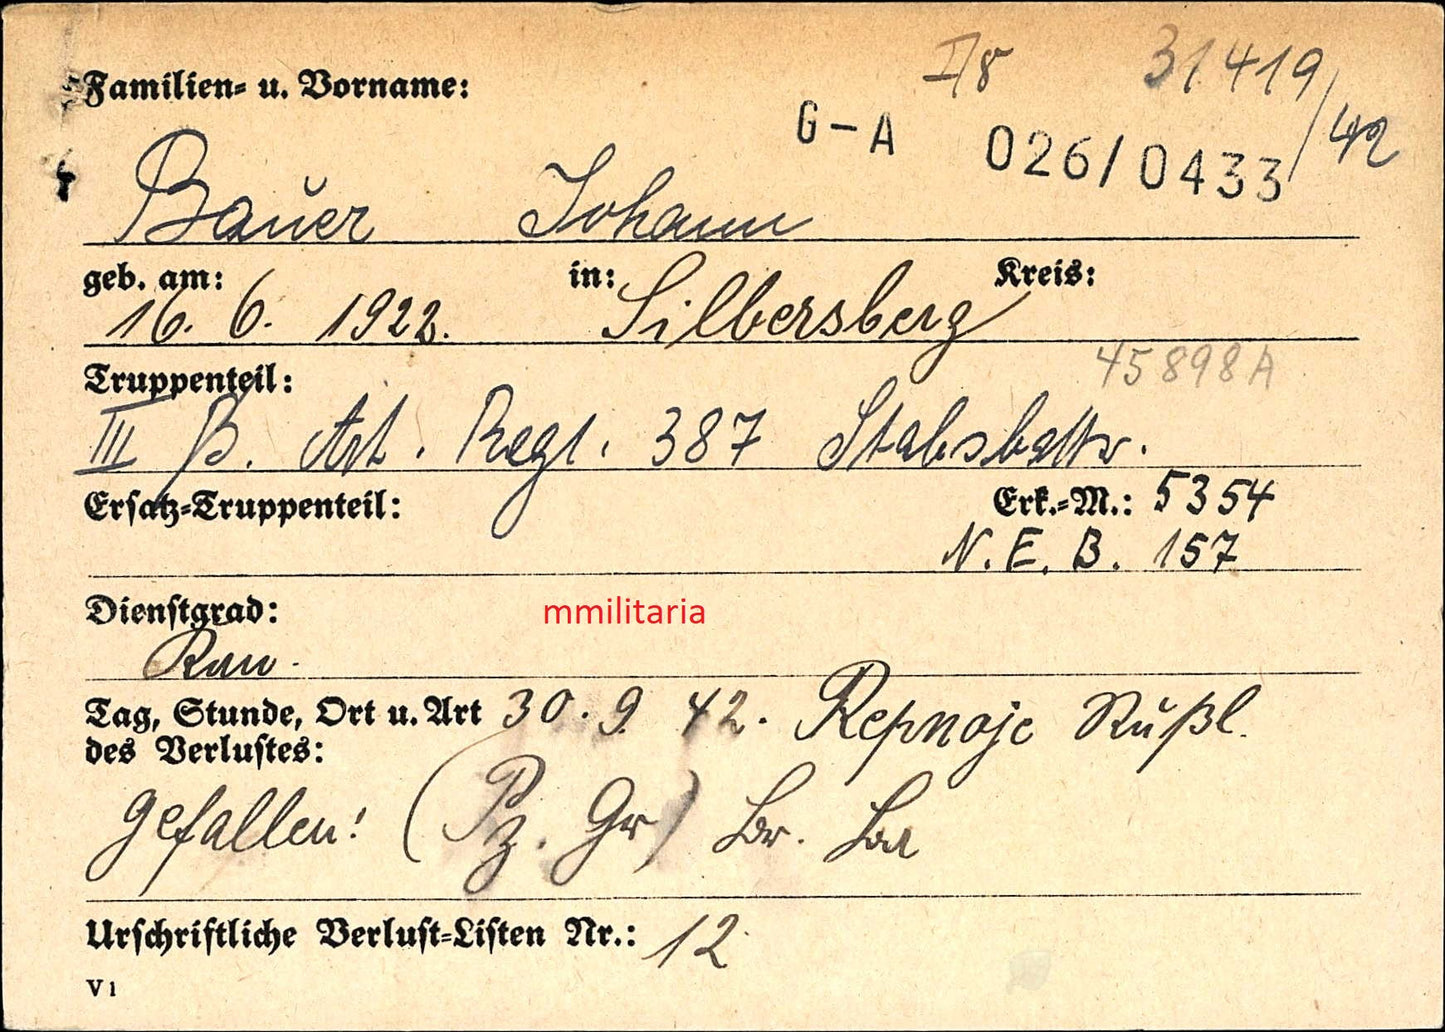 I/8 31419/42
Familien- u. Vorname:
G-A 026/0433
Bauer Johann
geb. am: in: Kreis:
16. 6. 1922. Silbersberg
45898A
Truppenteil:
III Art. Regt. 387 Stabsbattr.
Ersatz-Truppenteil: Erk.-M.: 5354
N. E. B. 157
Dienstgrad: mmilitaria
Kan.
Tag, Stunde, Ort u. Art 30. 9. 42. Repnoje Rußl.
des Verlustes:
gefallen! (Pz. Gr)
Urschriftliche Verlust-Listen Nr.: 12
V 1